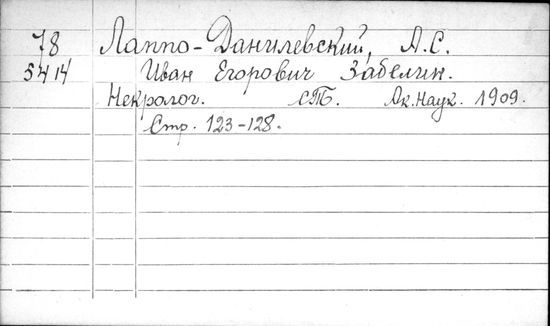 78 Лаппо-Данилевский, А.С.
5414 Иван Егорович Забелин.
Некролог. СПб. Ак. Наук. 1909.
Стр. 123-128.